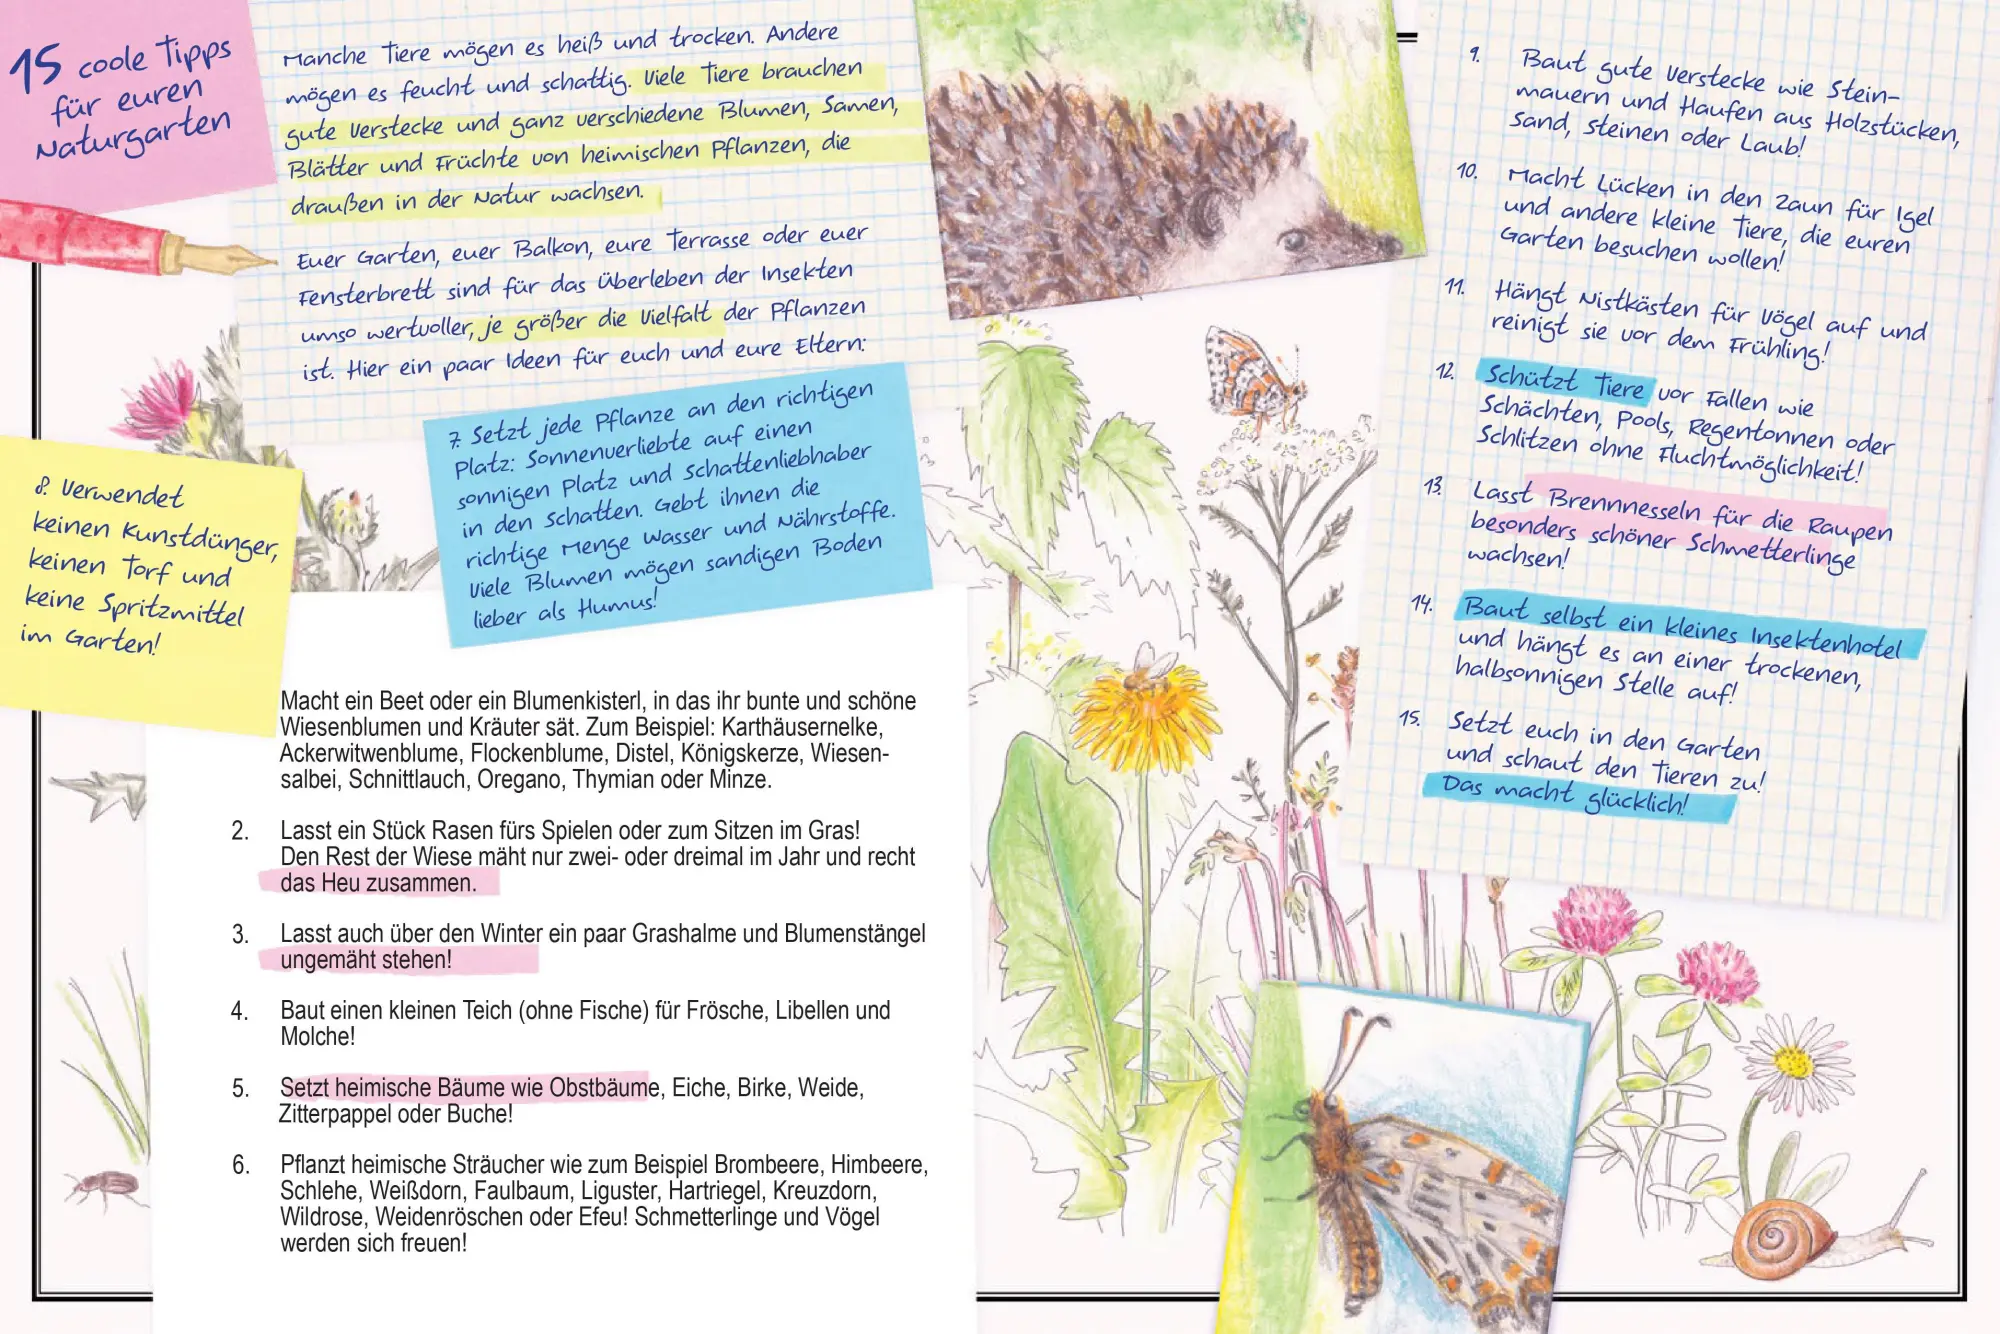 15 coole Tipps
für euren
Naturgarten
Manche Tiere mögen es heiß und trocken. Andere
mögen es feucht und schattig. Viele Tiere brauchen
gute Verstecke und ganz verschiedene Blumen, Samen,
Blätter und Früchte von heimischen Pflanzen, die
draußen in der Natur wachsen.
Euer Garten, euer Balkon, eure Terrasse oder euer
Fensterbrett sind für das Überleben der Insekten
umso wertvoller, je größer die Vielfalt der Pflanzen
ist. Hier ein paar Ideen für euch und eure Eltern:
Macht ein Beet oder ein Blumenkisterl, in das ihr bunte und schöne
Wiesenblumen und Kräuter sät. Zum Beispiel: Karthäusernelke,
Ackerwitwenblume, Flockenblume, Distel, Königskerze, Wiesen-
salbei, Schnittlauch, Oregano, Thymian oder Minze.
2. Lasst ein Stück Rasen fürs Spielen oder zum Sitzen im Gras!
Den Rest der Wiese mäht nur zwei- oder dreimal im Jahr und recht
das Heu zusammen.
3. Lasst auch über den Winter ein paar Grashalme und Blumenstängel
ungemäht stehen!
4. Baut einen kleinen Teich (ohne Fische) für Frösche, Libellen und
Molche!
5. Setzt heimische Bäume wie Obstbäume, Eiche, Birke, Weide,
Zitterpappel oder Buche!
6. Pflanzt heimische Sträucher wie zum Beispiel Brombeere, Himbeere,
Schlehe, Weißdorn, Faulbaum, Liguster, Hartriegel, Kreuzdorn,
Wildrose, Weidenröschen oder Efeu! Schmetterlinge und Vögel
werden sich freuen!
7. Setzt jede Pflanze an den richtigen
Platz: Sonnenverliebte auf einen
sonnigen Platz und Schattenliebhaber
in den Schatten. Gebt ihnen die
richtige Menge Wasser und Nährstoffe.
Viele Blumen mögen sandigen Boden
lieber als Humus!
8. Verwendet
keinen Kunstdünger,
keinen Torf und
keine Spritzmittel
im Garten!
9. Baut gute Verstecke wie Stein-
mauern und Haufen aus Holzstücken,
Sand, Steinen oder Laub!
10. Macht Lücken in den Zaun für Igel
und andere kleine Tiere, die euren
Garten besuchen wollen!
11. Hängt Nistkästen für Vögel auf und
reinigt sie vor dem Frühling!
12. Schützt Tiere vor Fallen wie
Schächten, Pools, Regentonnen oder
Schlitzen ohne Fluchtmöglichkeit!
13. Lasst Brennnesseln für die Raupen
besonders schöner Schmetterlinge
wachsen!
14. Baut selbst ein kleines Insektenhotel
und hängt es an einer trockenen,
halbsonnigen Stelle auf!
15. Setzt euch in den Garten
und schaut den Tieren zu!
Das macht glücklich!